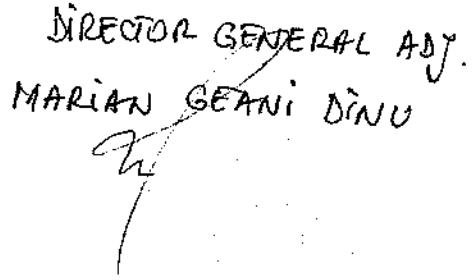 DIRECTOR GENERAL ADJ.
MARIAN GEANI DINU